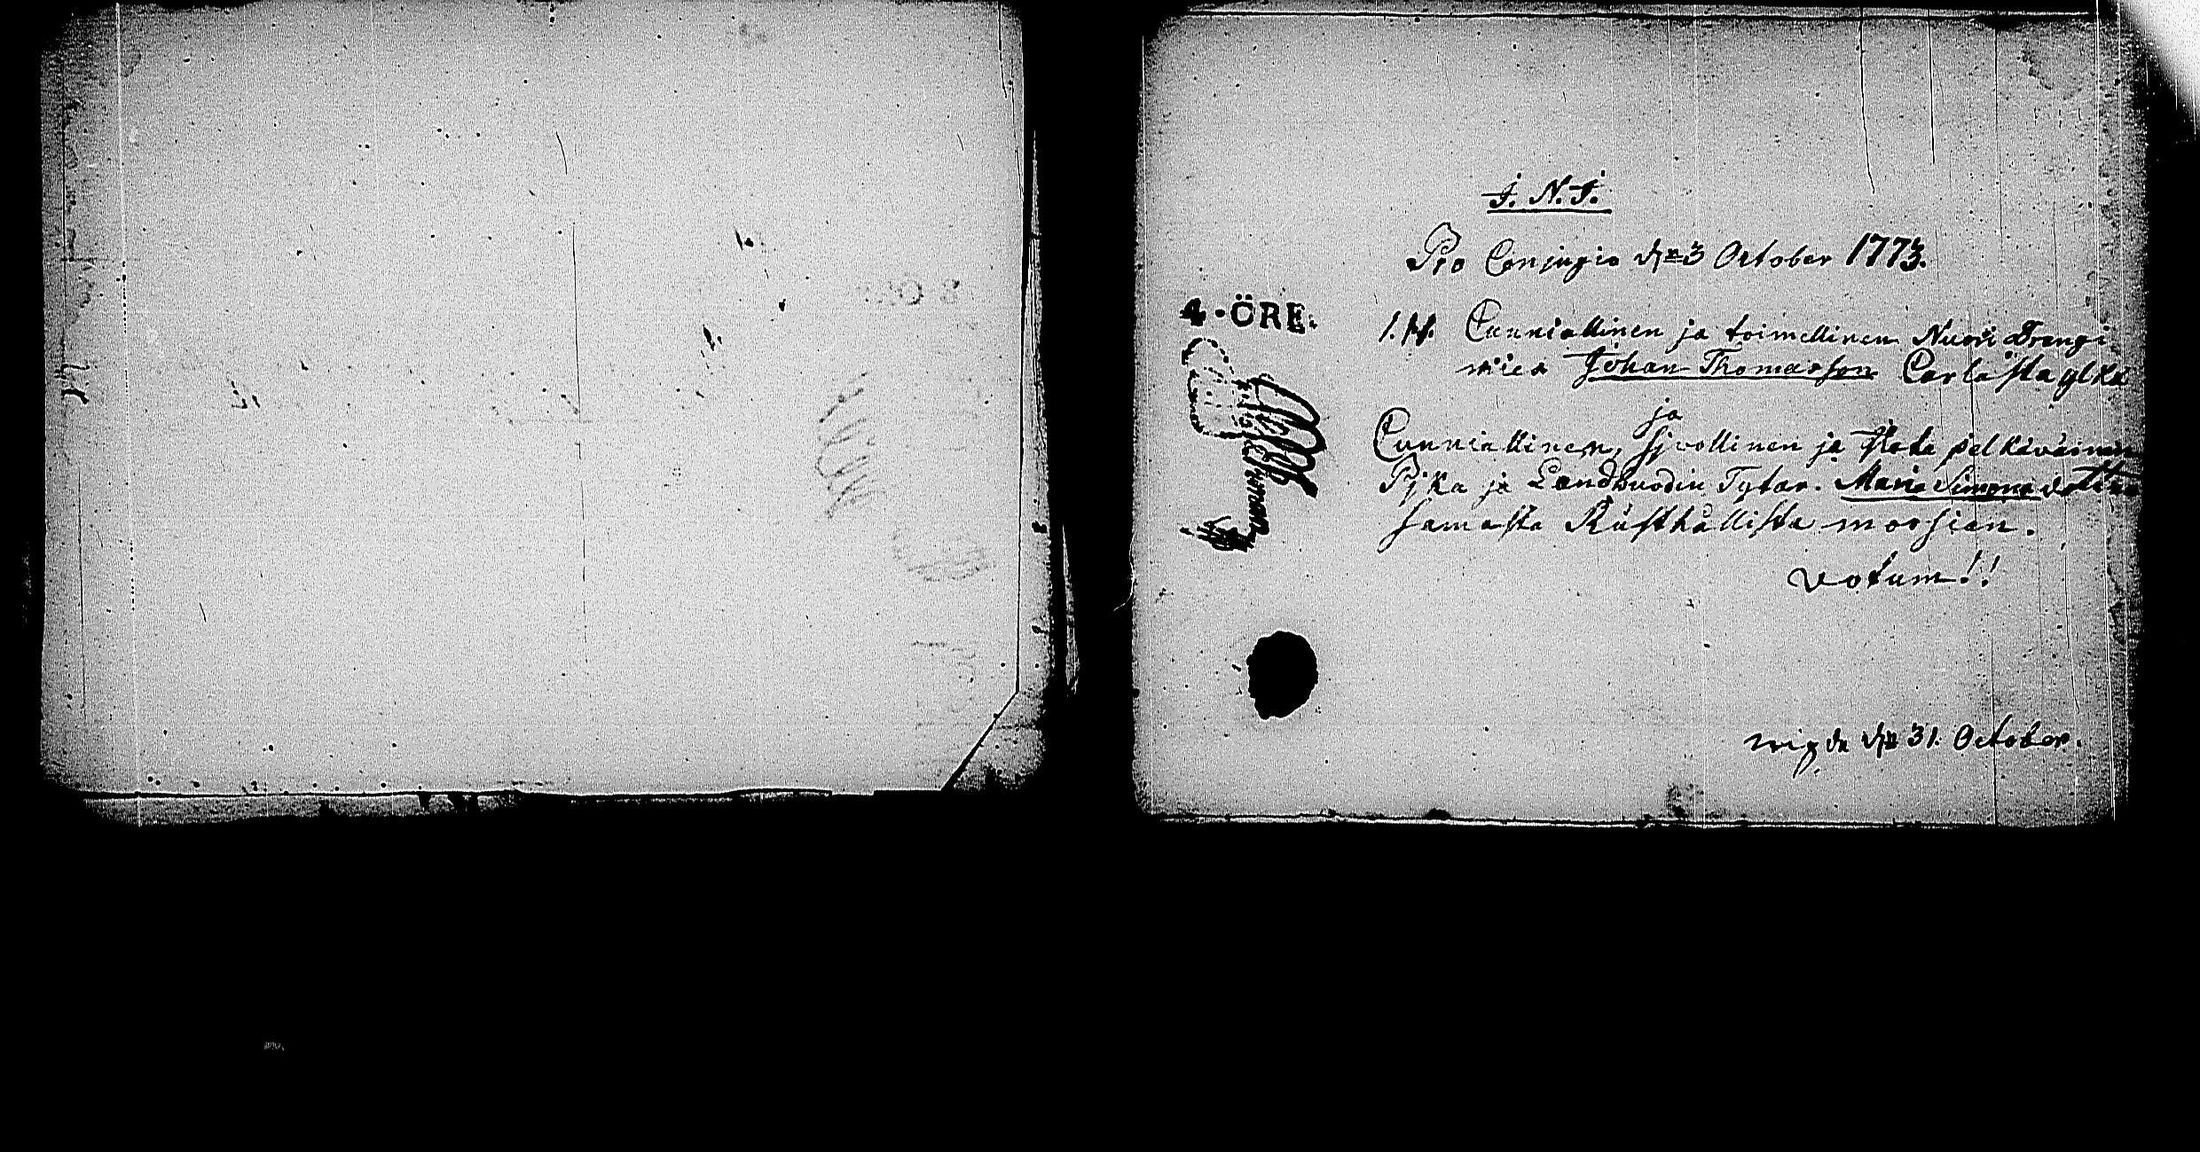 J. N. J.
Pro Conjugio d: 3 October 1773.
4 · ÖRE.
1. H. Cunniallinen ja toimellinen Nuori Drengi
mies Johan Thomasson Carlasta ylkä
ja
Cunniallinen, sjvollinen ja pelkäväinen
Pjka ja Landbuodin Tytar. Maria Simonsdotter
samasta Rusthållista morsian.
Votum!!
wigde d: 31. October.